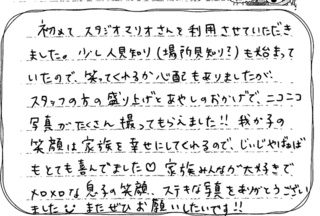 初めて スタジオマリオさんを利用させていただき
ました。少し人見知り(場所見知り?)も始まって
いたので、笑ってくれるか心配もありましたが、
スタッフの方の盛り上げとあやしのおかげで、ニコニコ
写真がたくさん撮ってもらえました!! 我が子の
笑顔は家族を幸せにしてくれるので、じぃじやばぁば
もとても喜んでました♡ 家族みんなが大好きで
メロメロな息子の笑顔、ステキな写真をありがとうござい
ました またぜひお願いしたいです!!